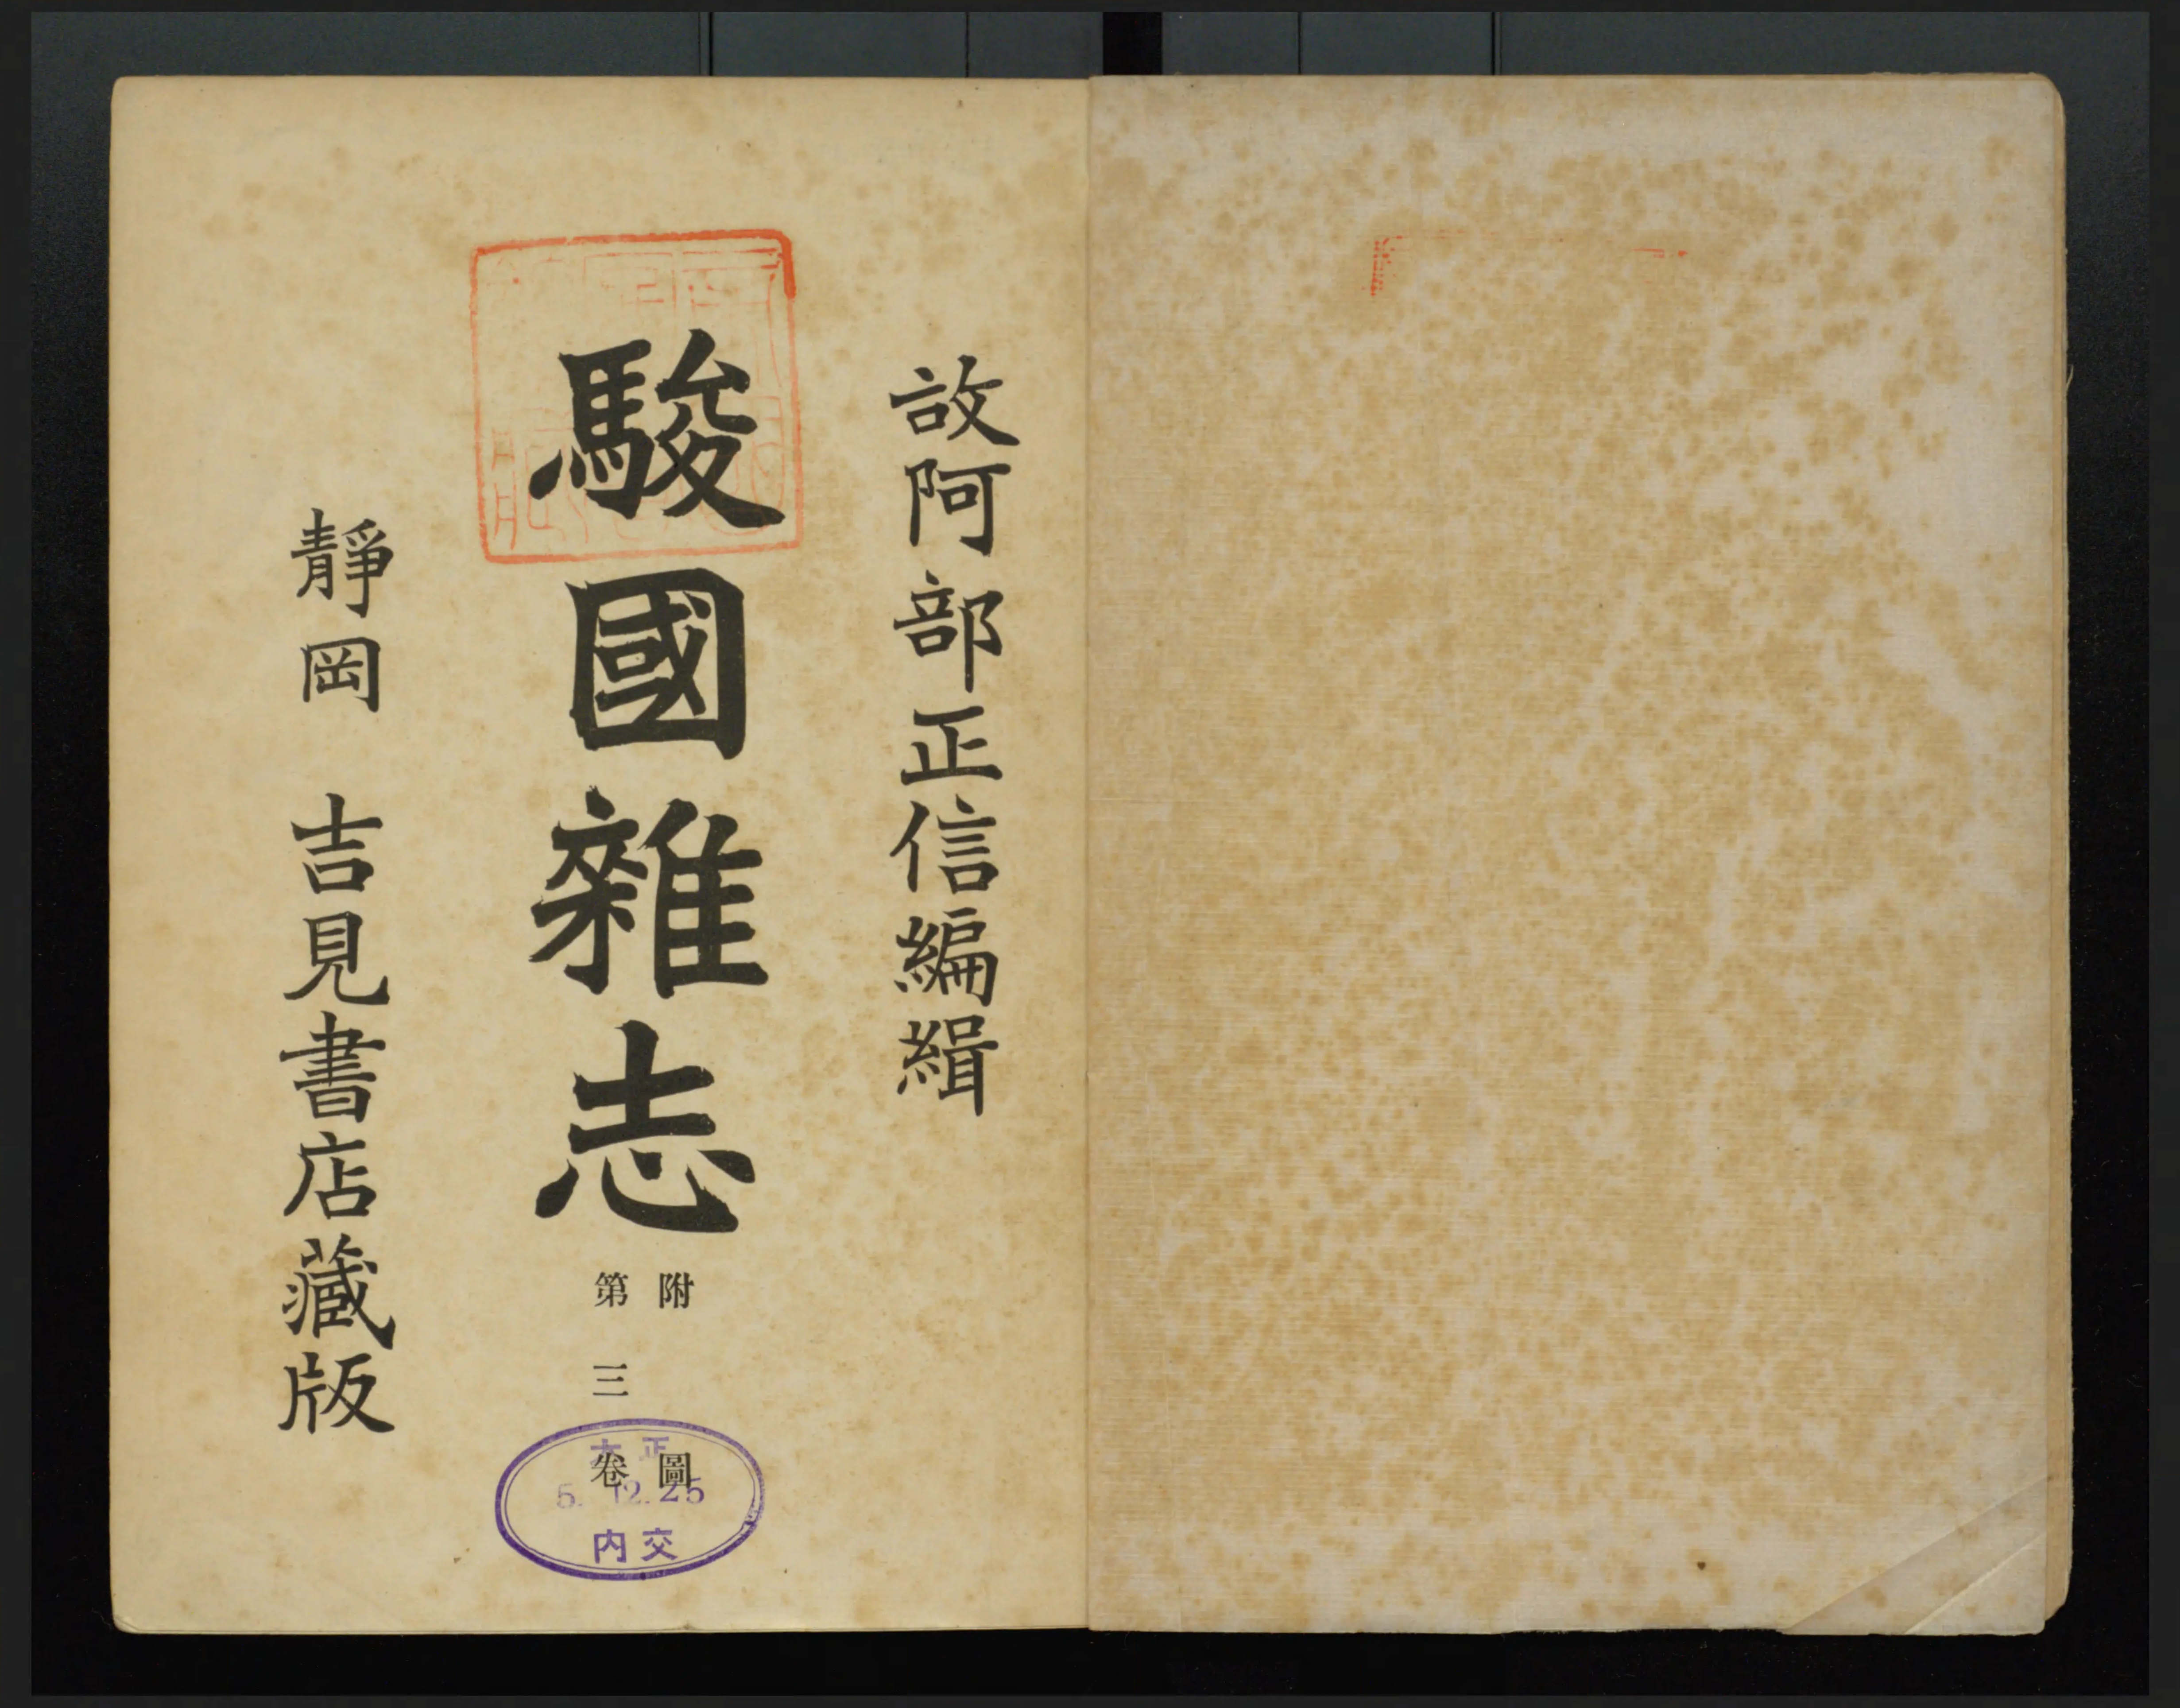 故阿部正信編緝
駿國雜志
附圖
第三卷
靜岡 吉見書店藏版
大正
5.12.25
内交